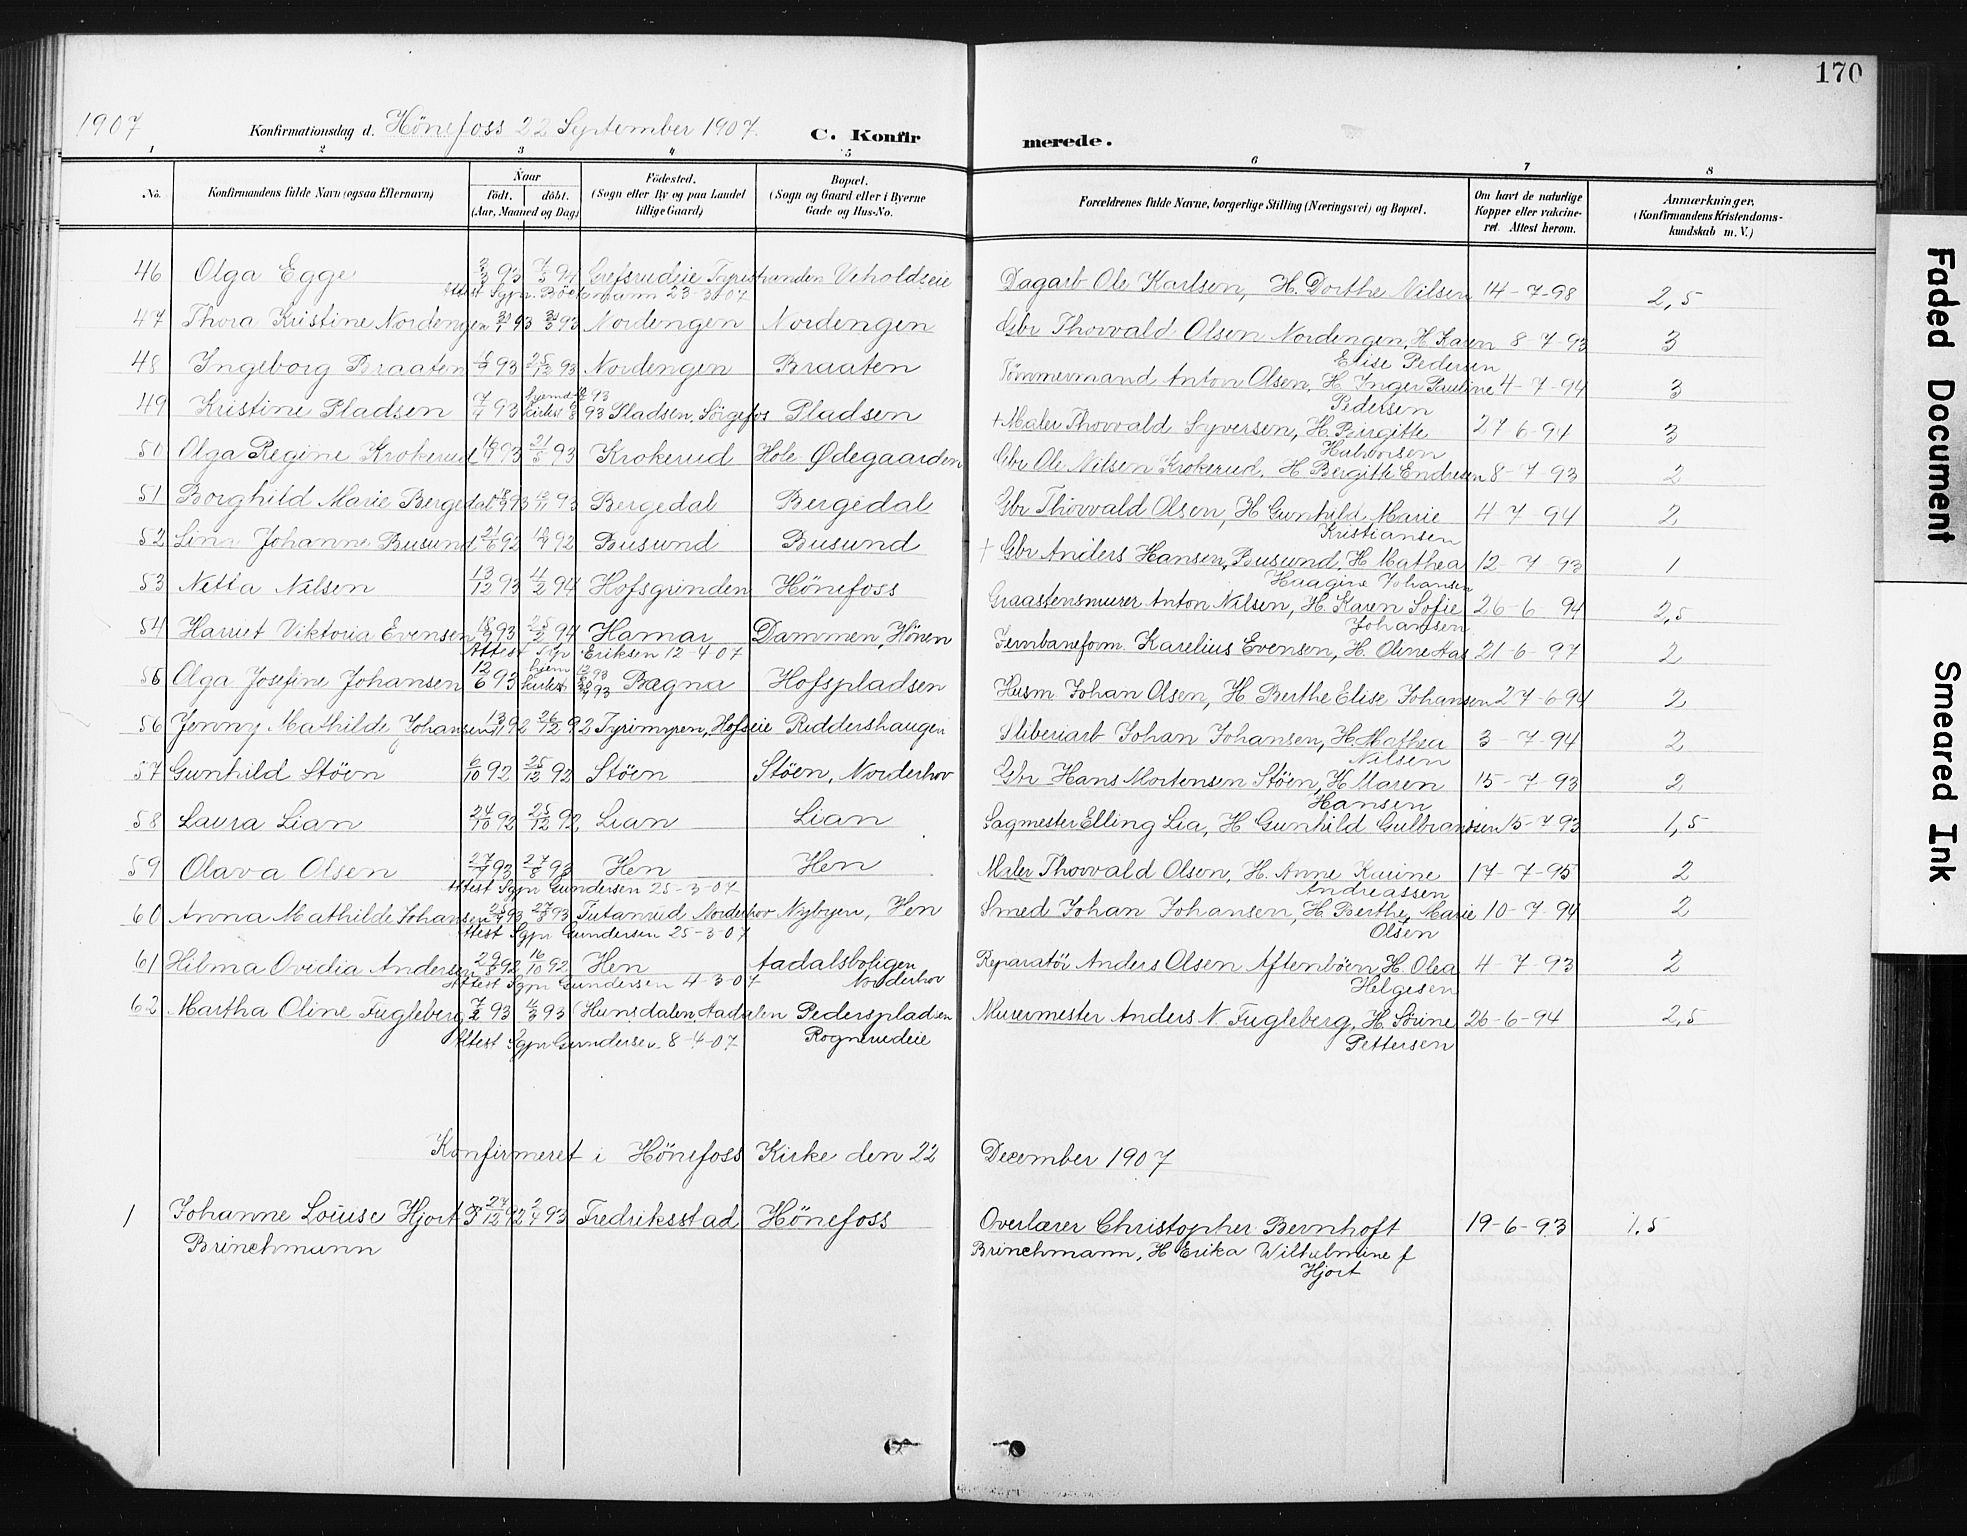 170
1907 Konfirmationsdag d. Hönefoss 22 September 1907. C. Konfirmerede.
1 2 3 4 5 6 7 8
No. Konfirmandens fulde Navn (ogsaa Efternavn) Naar födt. döbt. (Aar, Maaned og Dag) Födested. (Sogn eller By og paa Landet tillige Gaard) Bopæl. (Sogn og Gaard eller i Byerne Gade og Hus-No. Forældrenes fulde Navne, borgerlige Stilling (Næringsvei) og Bopæl. Om havt de naturlige Kopper eller vakcineret. Attest herom. Anmærkninger. (Konfirmandens Kristendomskundskab m. V.)
46 Olga Egge 2/3 93 7/5 94 Grefsrudeie Tyristranden Veholdseie Dagarb Ole Karlsen, H. Dorthe Nilsen 14-7-98 2,5
Attest Sgpr. Böckmann 23-3-07
47 Thora Kristine Nordengen 30/1 93 93 Nordengen Nordengen Gbr Thorvald Olsen Nordengen, H. Karen Elise Pedersen 8-7-93 3
48 Ingeborg Braaten 93 25/12 93 Nordengen Braaten Tömmermand Anton Olsen, H. Inger Pauline Pedersen 4-7-94 3
49 Kristine Pladsen 7/4 93 93 Pladsen, Sörgefos Pladsen + Maler Thorvald Syversen, H. Birgitte Halvorsen 27-6-94 3
50 Olga Regine Krokerud 93 21/5 93 Krokerud Hole Ødegaarden Gbr Ole Nilsen Krokerud, H Bergitte Endresen 8-7-93 2
51 Borghild Marie Bergedal 93 93 Bergedal Bergedal Gbr Thorvald Olsen, H Gunhild Marie Kristiansen 4-7-94 2
52 Lina Johanne Busund 21/6 92 92 Busund Busund + Gbr Anders Hansen, Busund, H Mathea Haagine Johansen 12-7-93 1
53 Netta Nilsen 13/12 93 11/2 94 Hofsgrinden Hönefoss Graastensmurer Anton Nilsen, H. Karen Sofie Johansen 26-6-94 2,5
54 Harriet Viktoria Evensen 18/9 93 25/2 94 Hamar Dammen, Hönen Jernbaneform. Karelius Evensen, H. Oline Aas 21-6-97 2
Attest Sgpr Eriksen 12-4-07
55 Olga Josefine Johansen 12/6 93 hjem 93 kirken 93 Bagna Hofspladsen Husm Johan Olsen, H Berthe Elise Johansen 27-6-94 2
56 Jenny Mathilde Johansen 13/11 92 26/12 92 Tyrimyren, Hofseie Riddershaugen Sliberiarb Johan Johansen, H. Mathea Nilsen 3-7-94 2
57 Gunhild Stöen 6/10 92 25/12 92 Stöen Stöen, Norderhov Gbr Hans Mortensen Stöen, H Maren Hansen 15-7-93 2
58 Laura Lian 24/10 92 25/12 92 Lian Lian Sagmester Elling Lia, H Gunhild Gulbrandsen 15-7-93 1,5
59 Olava Olsen 93 27/8 93 Hen Hen Maler Thorvald Olsen, H. Anne Karine Andreassen 17-7-95 2
Attest Sgpr Gundersen 25-3-07
60 Anna Mathilde Johansen 93 93 Tutanrud Norderhov Nybyen, Hen Smed Johan Johansen, H. Berthe Marie Olsen 10-7-94 2
Attest Sgpr Gundersen 25-3-07
61 Hilma Ovidia Andersen 29/8 92 16/10 92 Hen Aadalsboligen Norderhov Reparatör Anders Olsen Aftenböen, H. Olea Helgesen 4-7-93 2
Attest Sgpr Gundersen 4-3-07
62 Martha Oline Fugleberg 93 93 Hunsdalen, Aadalen Pederspladsen Rognerudeie Murermester Anders N. Fugleberg, H. Sörine Pettersen 26-6-94 2,5
Attest Sgpr Gundersen 8-4-07
Konfirmeret i Hönefoss Kirke den 22 December 1907
1 Johanne Louise Hjort P Brinchmann 27/12 92 2/4 93 Fredriksstad Hönefoss Overlærer Christopher Bernhoft 19-6-93 1,5
Brinchmann, H Erika Wilhelmine f
Hjort
Faded Document
Smeared Ink